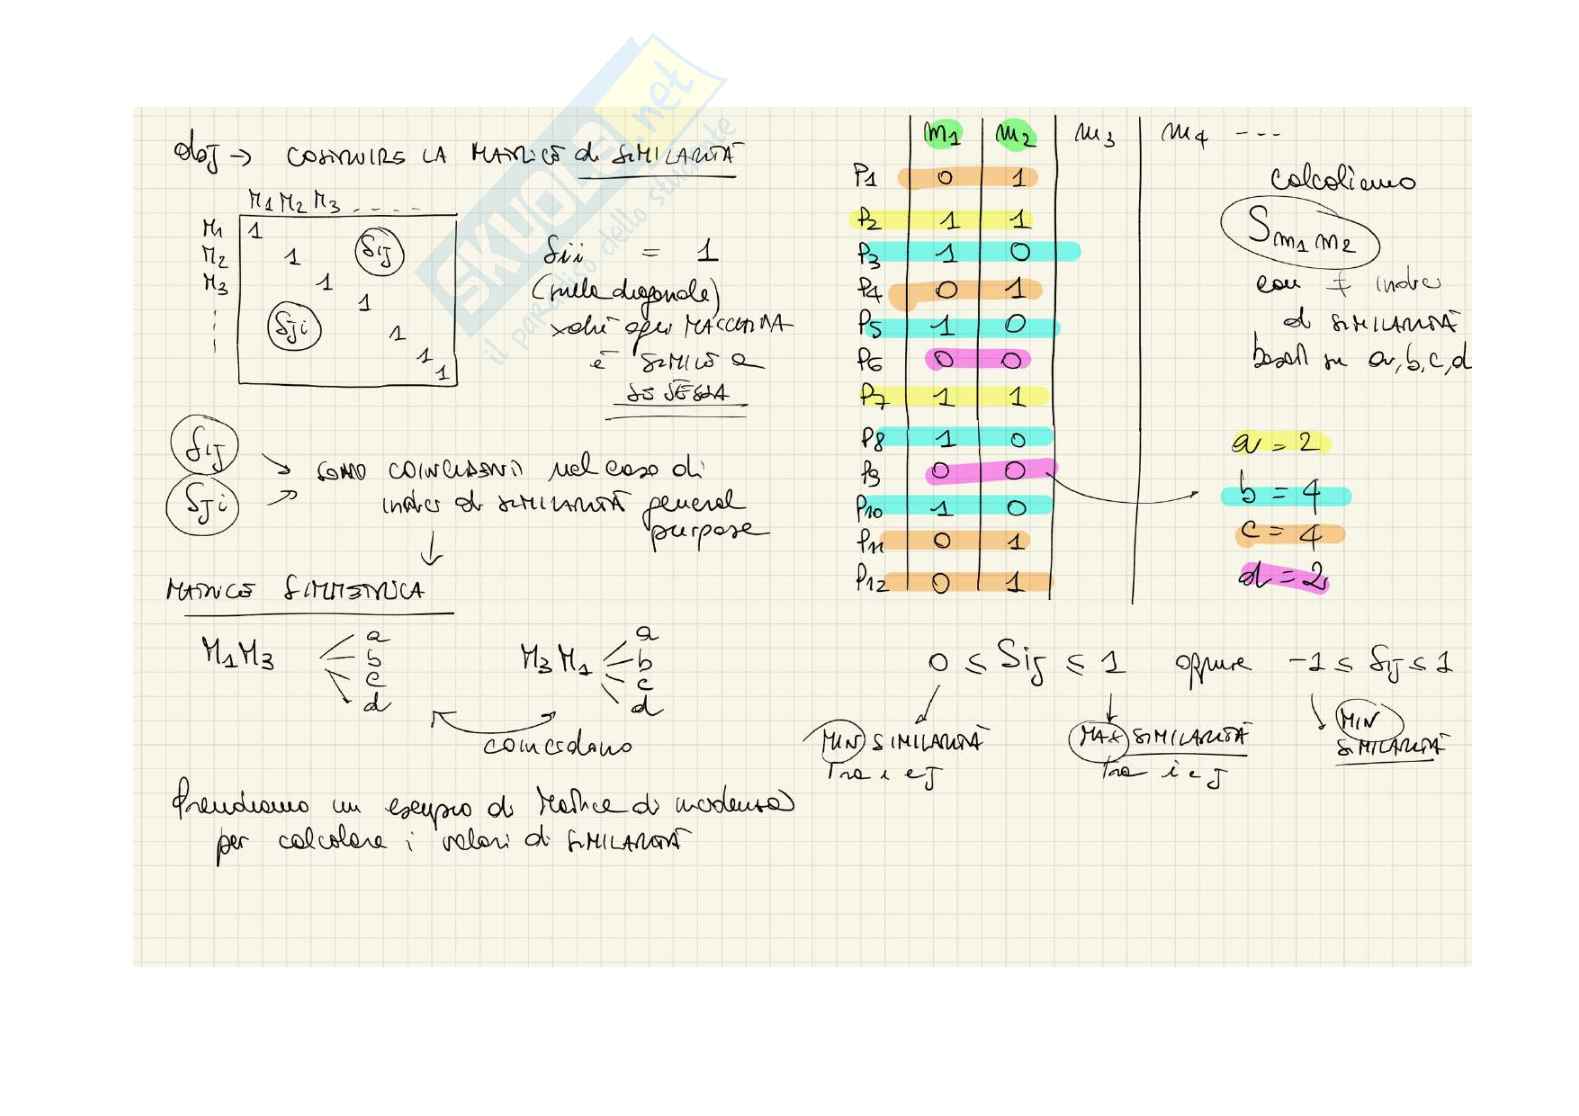 obj → COSTRUIRE LA MATRICE di SIMILARITÀ
M1 M2 M3 - - - - -
M1 1
M2 1 Sij
M3 1
1
Sji 1
1
1
Sii = 1
(sulla diagonale)
xché ogni MACCHINA
è SIMILE a
SE STESSA
Sij
Sji
→ SONO COINCIDENTI nel caso di
indici di SIMILARITÀ general
purpose
↓
MATRICE SIMMETRICA
M1M3 a b c d
M3M1 a b c d
coincidono
Prendiamo un esempio di Matrice di incidenza
per calcolare i valori di SIMILARITÀ
m1 m2 m3 m4 - - -
P1 0 1
P2 1 1
P3 1 0
P4 0 1
P5 1 0
P6 0 0
P7 1 1
P8 1 0
P9 0 0
P10 1 0
P11 0 1
P12 0 1
calcoliamo
Sm1m2
con ≠ indici
di SIMILARITÀ
basati su a, b, c, d
a = 2
b = 4
c = 4
d = 2
0 ≤ Sij ≤ 1 oppure -1 ≤ Sij ≤ 1
MIN SIMILARITÀ
Tra i e J
MAX SIMILARITÀ
Tra i e J
MIN
SIMILARITÀ
SKUOLA.net
il paradiso dello studente